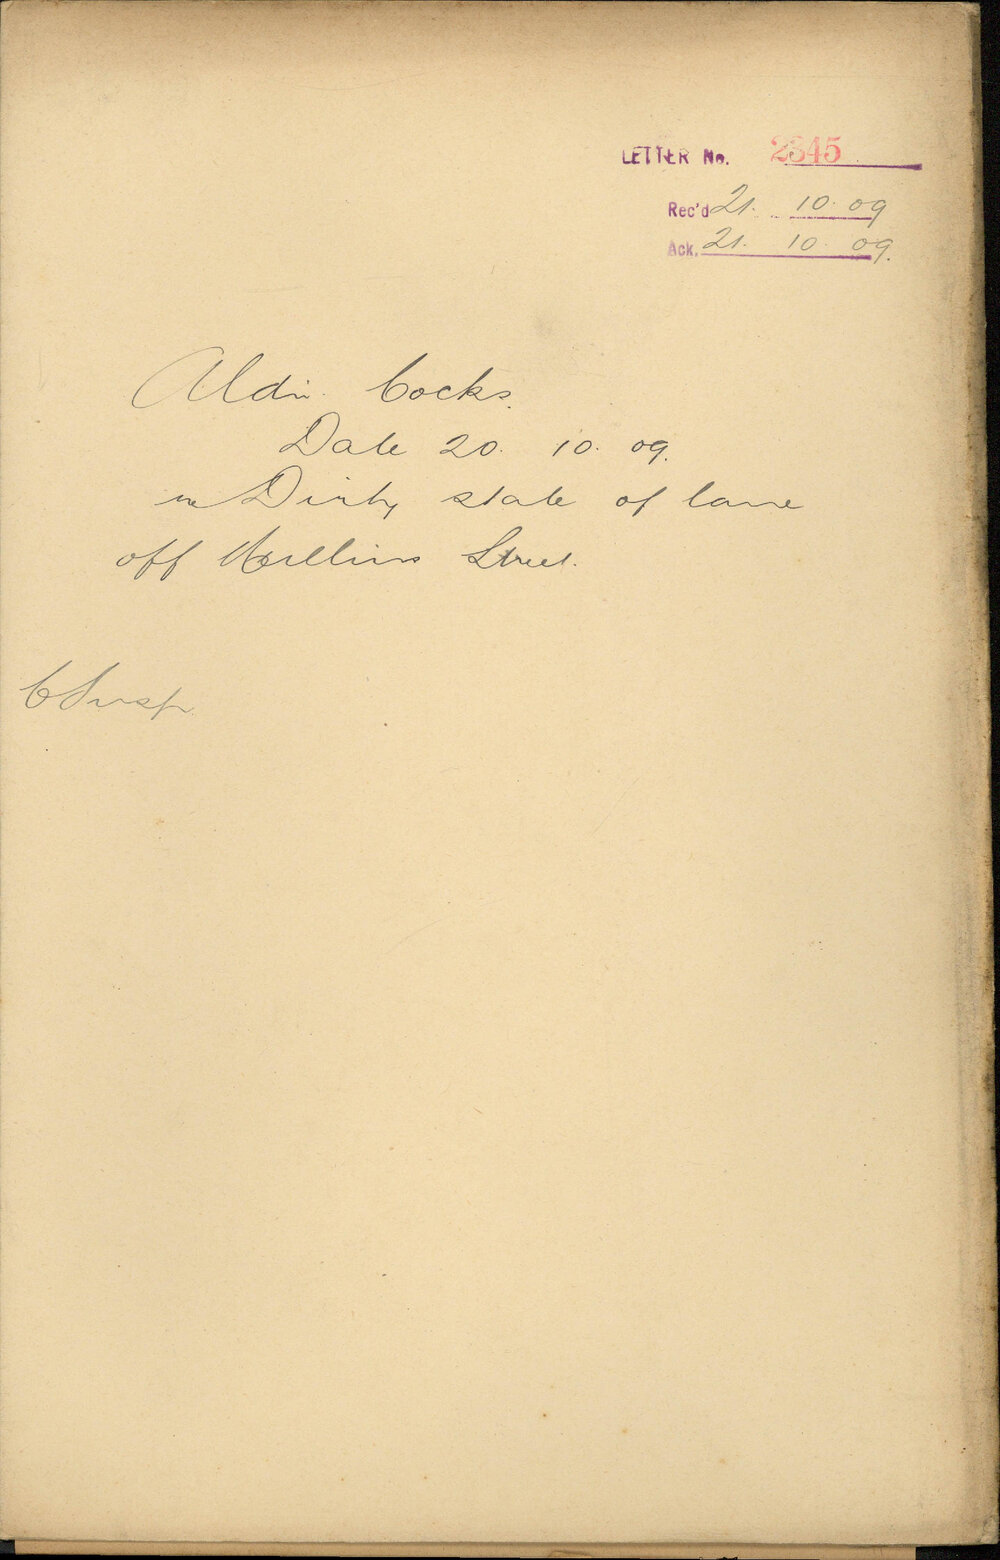 LETTER No. 2345
Rec'd 21. 10. 09
Ack. 21. 10. 09.
Aldn. Cocks.
Date 20. 10. 09.
re Dirty state of lane
off Mullins Street.
C Insp